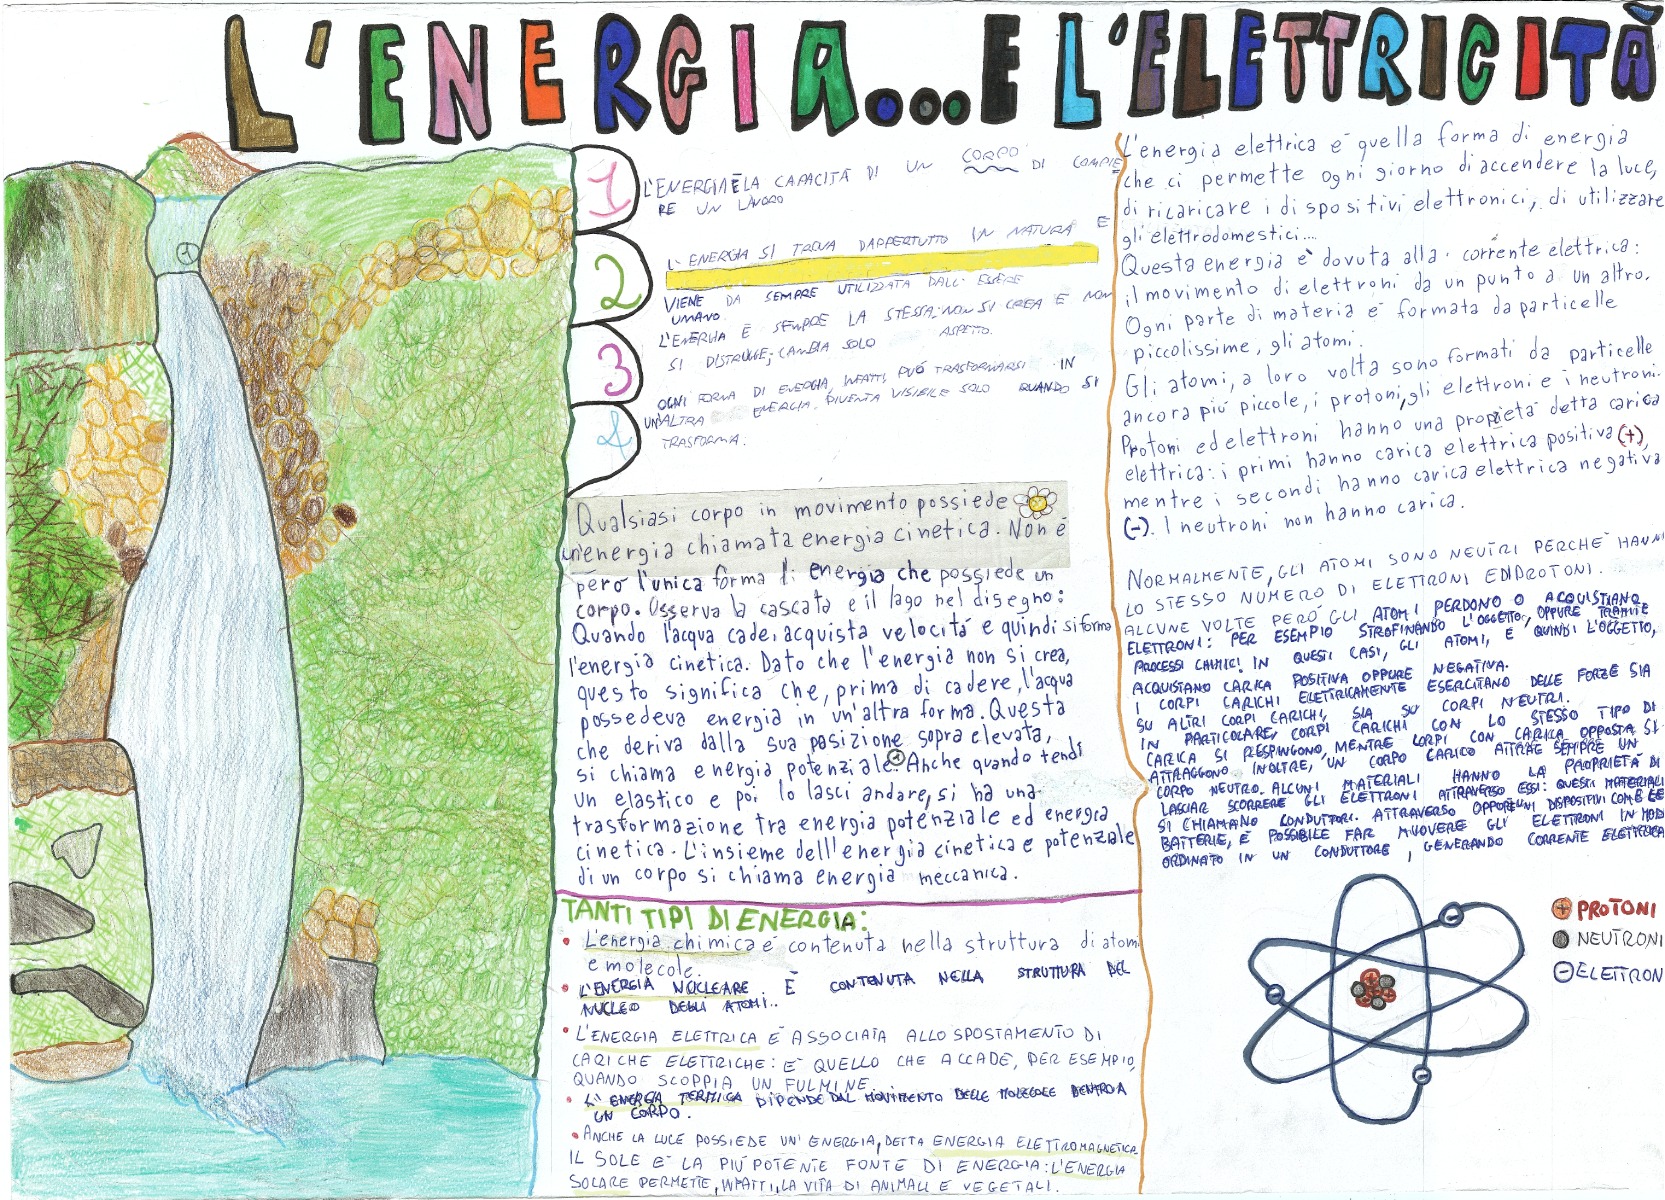 L'ENERGIA...E L'ELETTRICITÀ
1
L'ENERGIA È LA CAPACITÀ DI UN CORPO DI COMPIE
RE UN LAVORO
2
L'ENERGIA SI TROVA DAPPERTUTTO IN NATURA E
VIENE DA SEMPRE UTILIZZATA DALL'ESSERE
UMANO.
3
L'ENERGIA È SEMPRE LA STESSA: NON SI CREA E NON
SI DISTRUGGE; CAMBIA SOLO ASPETTO.
4
OGNI FORMA DI ENERGIA, INFATTI, PUÓ TRASFORMARSI IN
UN'ALTRA ENERGIA. DIVENTA VISIBILE SOLO QUANDO SI
TRASFORMA.
Qualsiasi corpo in movimento possiede
un'energia chiamata energia cinetica. Non è
però l'unica forma di energia che possiede un
corpo. Osserva la cascata e il lago nel disegno:
Quando l'acqua cade, acquista velocitá e quindi si forma
l'energia cinetica. Dato che l'energia non si crea,
questo significa che, prima di cadere, l'acqua
possedeva energia in un'altra forma. Questa
che deriva dalla sua posizione sopra elevata,
si chiama energia potenziale. Anche quando tendi
un elastico e poi lo lasci andare, si ha una
trasformazione tra energia potenziale ed energia
cinetica. L'insieme dell'energia cinetica e potenziale
di un corpo si chiama energia meccanica.
TANTI TIPI DI ENERGIA:
• L'energia chimica é contenuta nella struttura di atom
e molecole.
• L'ENERGIA NUCLEARE È CONTENUTA NELLA STRUTTURA DEL
NUCLEO DEGLI ATOMI..
• L'ENERGIA ELETTRICA È ASSOCIATA ALLO SPOSTAMENTO DI
CARICHE ELETTRICHE: È QUELLO CHE ACCADE, PER ESEMPIO,
QUANDO SCOPPIA UN FULMINE.
• L'ENERGIA TERMICA DIPENDE DAL MOVIMENTO DELLE MOLECOLE DENTRO A
UN CORPO.
• ANCHE LA LUCE POSSIEDE UN'ENERGIA, DETTA ENERGIA ELETTROMAGNETICA.
IL SOLE È LA PIÚ POTENTE FONTE DI ENERGIA: L'ENERGIA
SOLARE PERMETTE, INFATTI, LA VITA DI ANIMALI E VEGETALI.
L'energia elettrica é quella forma di energia
che ci permette ogni giorno di accendere la luce,
di ricaricare i dispositivi elettronici, di utilizzare
gli elettrodomestici...
Questa energia è dovuta alla corrente elettrica:
il movimento di elettroni da un punto a un altro.
Ogni parte di materia é formata da particelle
piccolissime, gli atomi.
Gli atomi, a loro volta sono formati da particelle
ancora piú piccole, i protoni, gli elettroni e i neutroni.
Protoni ed elettroni hanno una proprietá detta carica
elettrica: i primi hanno carica elettrica positiva (+),
mentre i secondi hanno carica elettrica negativa
(-). I neutroni non hanno carica.
NORMALMENTE, GLI ATOMI SONO NEUTRI PERCHÉ HANN
LO STESSO NUMERO DI ELETTRONI ED I PROTONI.
ALCUNE VOLTE PERÓ GLI ATOMI PERDONO O ACQUISTANO
ELETTRONI: PER ESEMPIO STROFINANDO L'OGGETTO, OPPURE TRAMITE
PROCESSI CHIMICI. IN QUESTI CASI, GLI ATOMI, E QUINDI L'OGGETTO,
ACQUISTANO CARICA POSITIVA OPPURE NEGATIVA.
I CORPI CARICHI ELETTRICAMENTE ESERCITANO DELLE FORZE SIA
SU ALTRI CORPI CARICHI, SIA SU CORPI NEUTRI.
IN PARTICOLARE, CORPI CARICHI CON LO STESSO TIPO DI
CARICA SI RESPINGONO, MENTRE CORPI CON CARICA OPPOSTA SI
ATTRAGGONO. INOLTRE, UN CORPO CARICO ATTRAE SEMPRE UN
CORPO NEUTRO. ALCUNI MATERIALI HANNO LA PROPRIETÀ DI
LASCIAR SCORRERE GLI ELETTRONI ATTRAVERSO ESSI: QUESTI MATERIALI
SI CHIAMANO CONDUTTORI. ATTRAVERSO OPPORTUNI DISPOSITIVI COME LE
BATTERIE, È POSSIBILE FAR MUOVERE GLI ELETTRONI IN MODO
ORDINATO IN UN CONDUTTORE, GENERANDO CORRENTE ELETTRICA
+ PROTONI
NEUTRONI
- ELETTRON